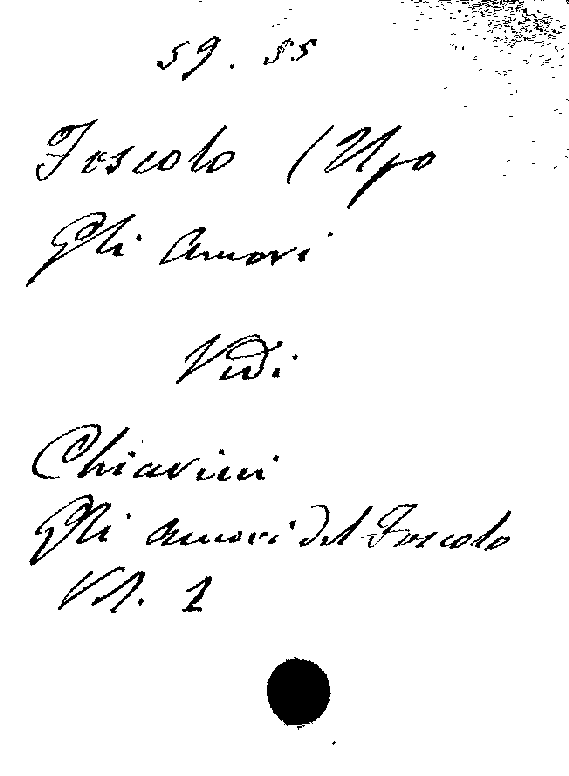 59. 55
Foscolo (Ugo
Gli Amori
Vedi
Chiarini
Gli Amori del Foscolo
Vol. 1